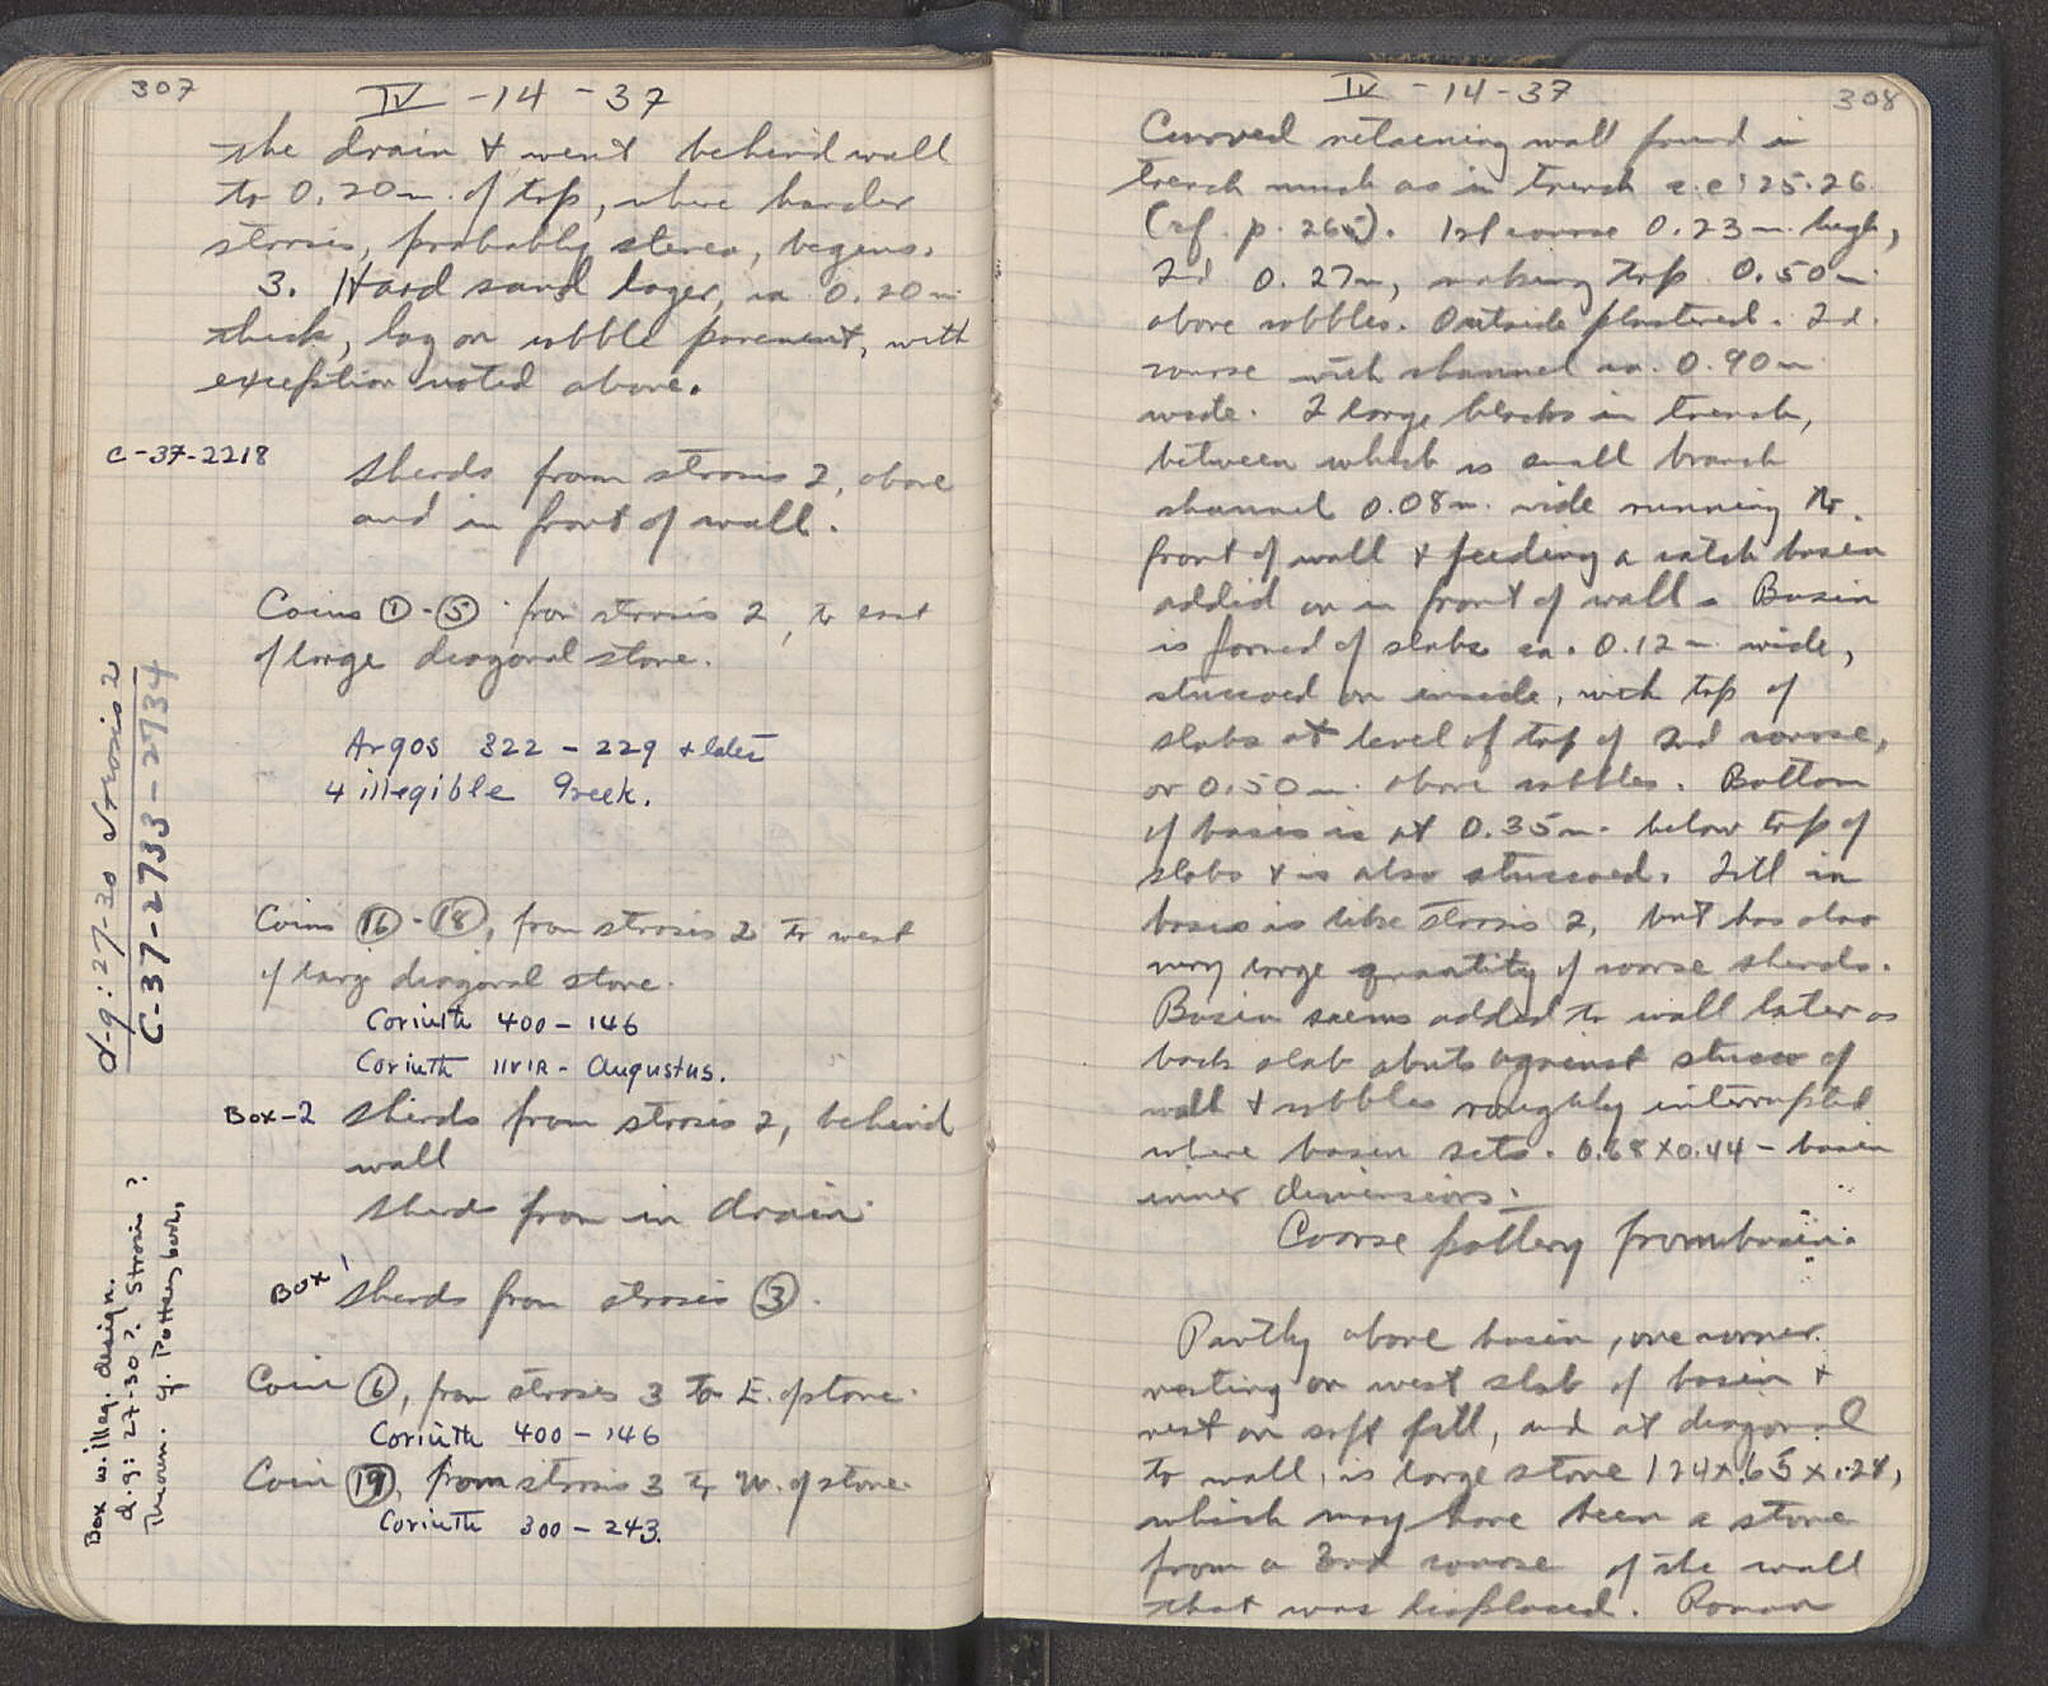 307
IV - 14 - 37
the drain + went behind wall
to 0.20 m. of top, where harder
strosis, probably stereo, begins.
3. Hard sand layer, ca 0.20 m
thick, lay on cobble pavement, with
exception noted above.
C-37-2218
Sherds from strosis 2, above
and in front of wall.
Coins ①-⑤ from strosis 2, to east
of large diagonal stone.
Argos 322 - 229 + later
4 illegible Greek.
d-g: 27-30 strosis 2
C-37-2733-2734
Coins ⑯-⑱, from strosis 2 to west
of large diagonal stone.
Corinth 400 - 146
Corinth IIVIR - Augustus.
Box-2 Sherds from strosis 2, behind
wall
Sherds from in drain.
Box 1 Sherds from strosis ③.
Coin ⑥, from strosis 3 to E. of stone.
Corinth 400 - 146
Coin ⑲, from strosis 3 to W. of stone.
Corinth 300 - 243.
Box w. illeg. design.
d-g: 27-30? Strosis ?
Pottery
308
IV - 14 - 37
Curved retaining wall found in
trench much as in trench 25-26
(cf. p. 265). 1st course 0.23 m. high,
2nd 0.27 m, making top 0.50 m
above cobbles. Outside plastered. 2d.
course with channel ca. 0.90 m
wide. 2 large blocks in trench,
between which is small branch
channel 0.08 m. wide running to
front of wall + feeding a catch basin
added on in front of wall. Basin
is formed of slabs ca. 0.12 m wide,
stuccoed on inside, with top of
slabs at level of top of 2nd course,
or 0.50 m. above cobbles. Bottom
of basin is at 0.35 m. below top of
slabs + is also stuccoed. Fill in
basin is like strosis 2, but has also
very large quantity of coarse sherds.
Basin seems added to wall later as
back slab abuts against stucco of
wall + cobbles roughly interrupted
where basin sets. 0.68 x 0.44 - basin
inner dimensions.
Coarse pottery from basin.
Partly above basin, one corner
resting on west slab of basin +
rest on soft fill, and at diagonal
to wall, is large stone 1.24 x .65 x .28,
which may have been a stone
from a 3rd course of the wall
that was displaced. Roman